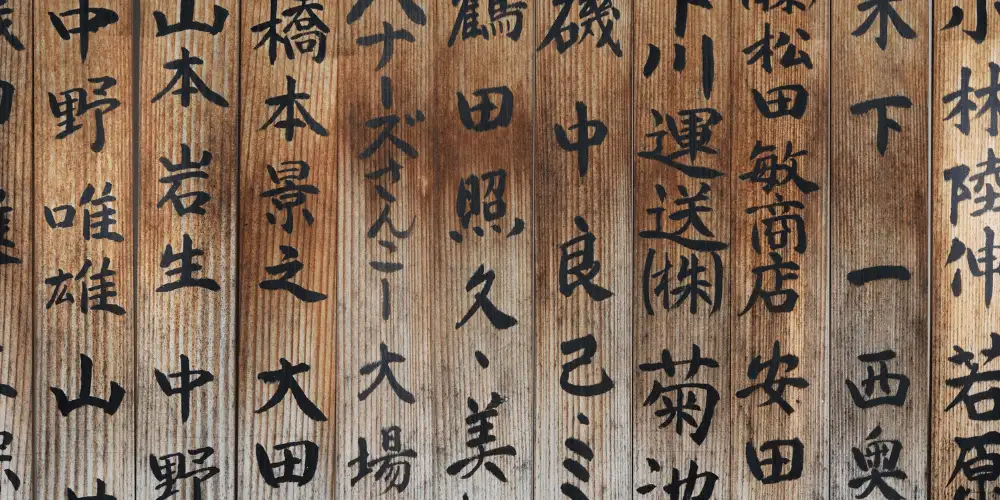 小林陸伸 若原
木下一 西奥
松田敏商店 安田
下川運送(株) 菊池
磯中良己・ミ
鶴田照久、美
ハナーズさんこー 大場
橋本景之 大田
山本岩生 中野
中野唯雄 山